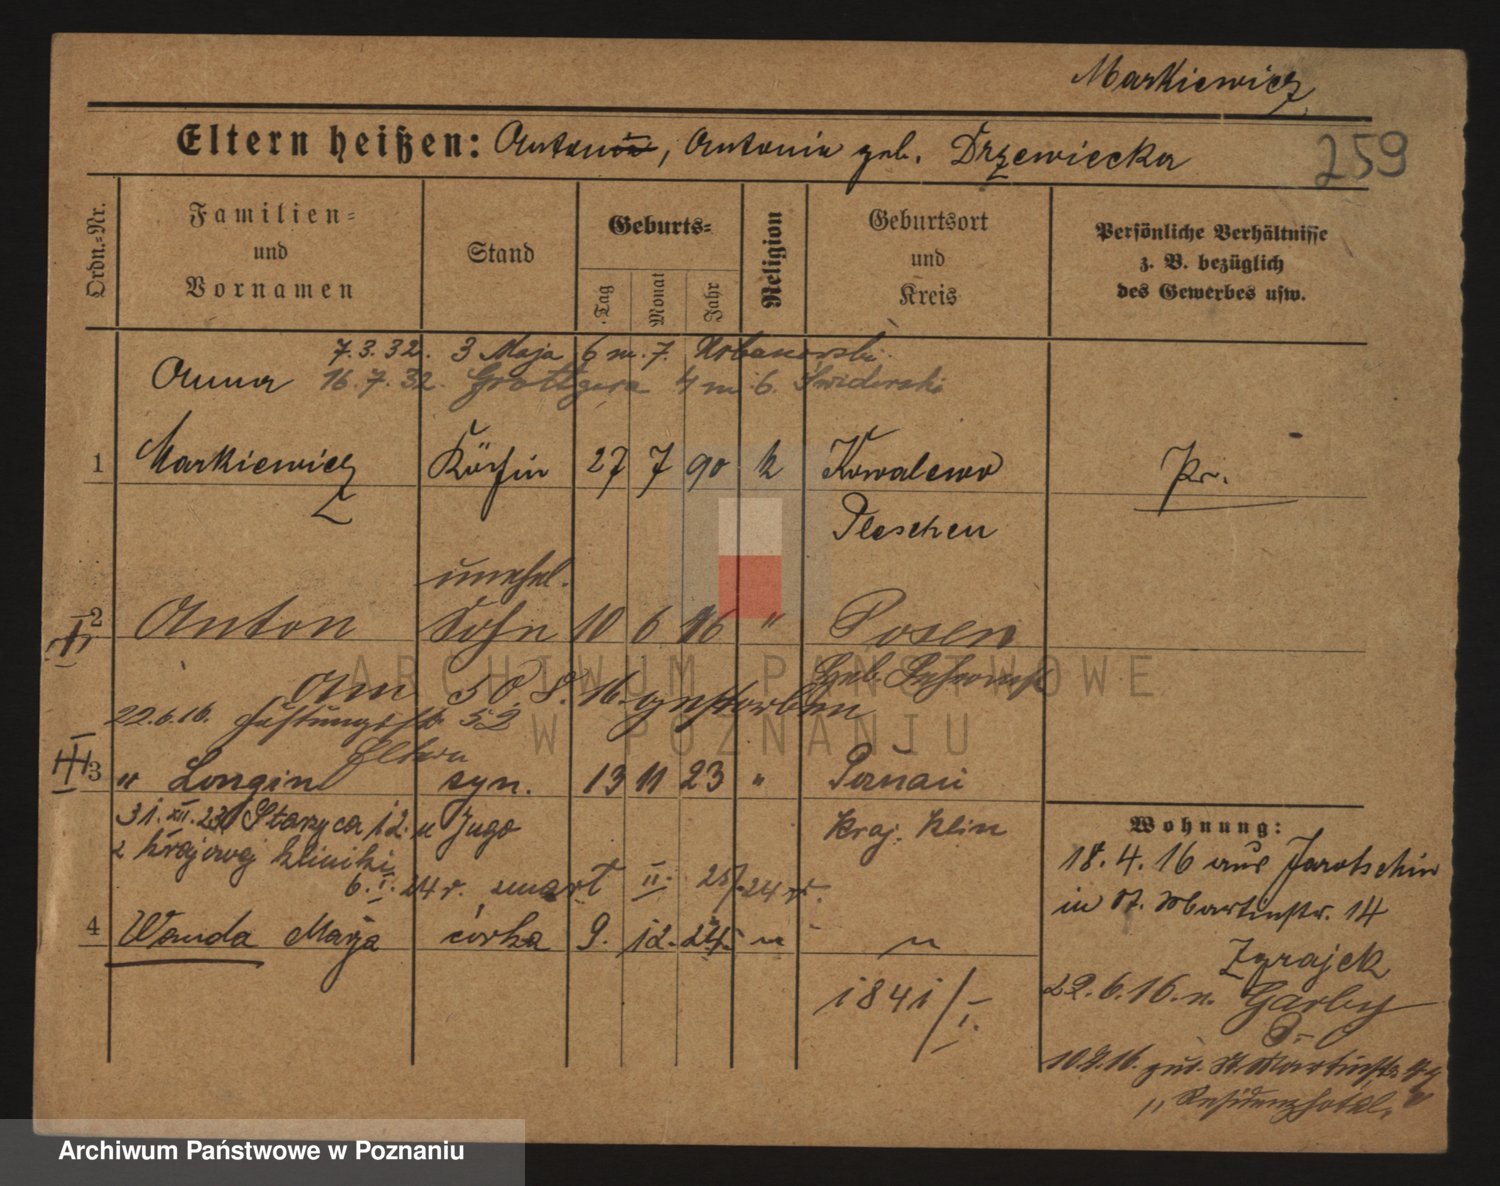 Markiewicz
Eltern heißen: Anton, Antonie geb. Drzewiecka
259
Ordn.=Nr.
Familien= und Vornamen
Stand
Geburts=
Tag
Monat
Jahr
Religion
Geburtsort und Kreis
Persönliche Verhältnisse
z. B. bezüglich
des Gewerbes usw.
7.3.32. 3 Maja 6 m. 7. Urbanowski
Anna 16.7.32. Grottgera 4 m. 6. Świderski
1 Markiewicz Köchin 27 7 90 k Kowalewo Kr.
Pleschen
unehel.
2 Anton Sohn 10 6 16 " Posen
Geb.
Am 30.8.16. gestorben
22.6.16. Festungsstr 52
Eltern
3 " Longin syn. 13 11 23 " Poznań
31.XII.23 Starzyca 12. u Jugo Kraj. Klin
z Krajowej kliniki
6.I.24 r. umarł II. 24 r.
4 Wanda Marja córka 9. 12. 24. " "
1841/I.
Wohnung:
18.4.16 aus Jarotschin
in St. Martinstr. 14
Zgrajek
22.6.16. n. Garby
10.8.16. zur. St. Martinstr.
" Residenzhotel.
ARCHIWUM PAŃSTWOWE
W POZNANIU
Archiwum Państwowe w Poznaniu